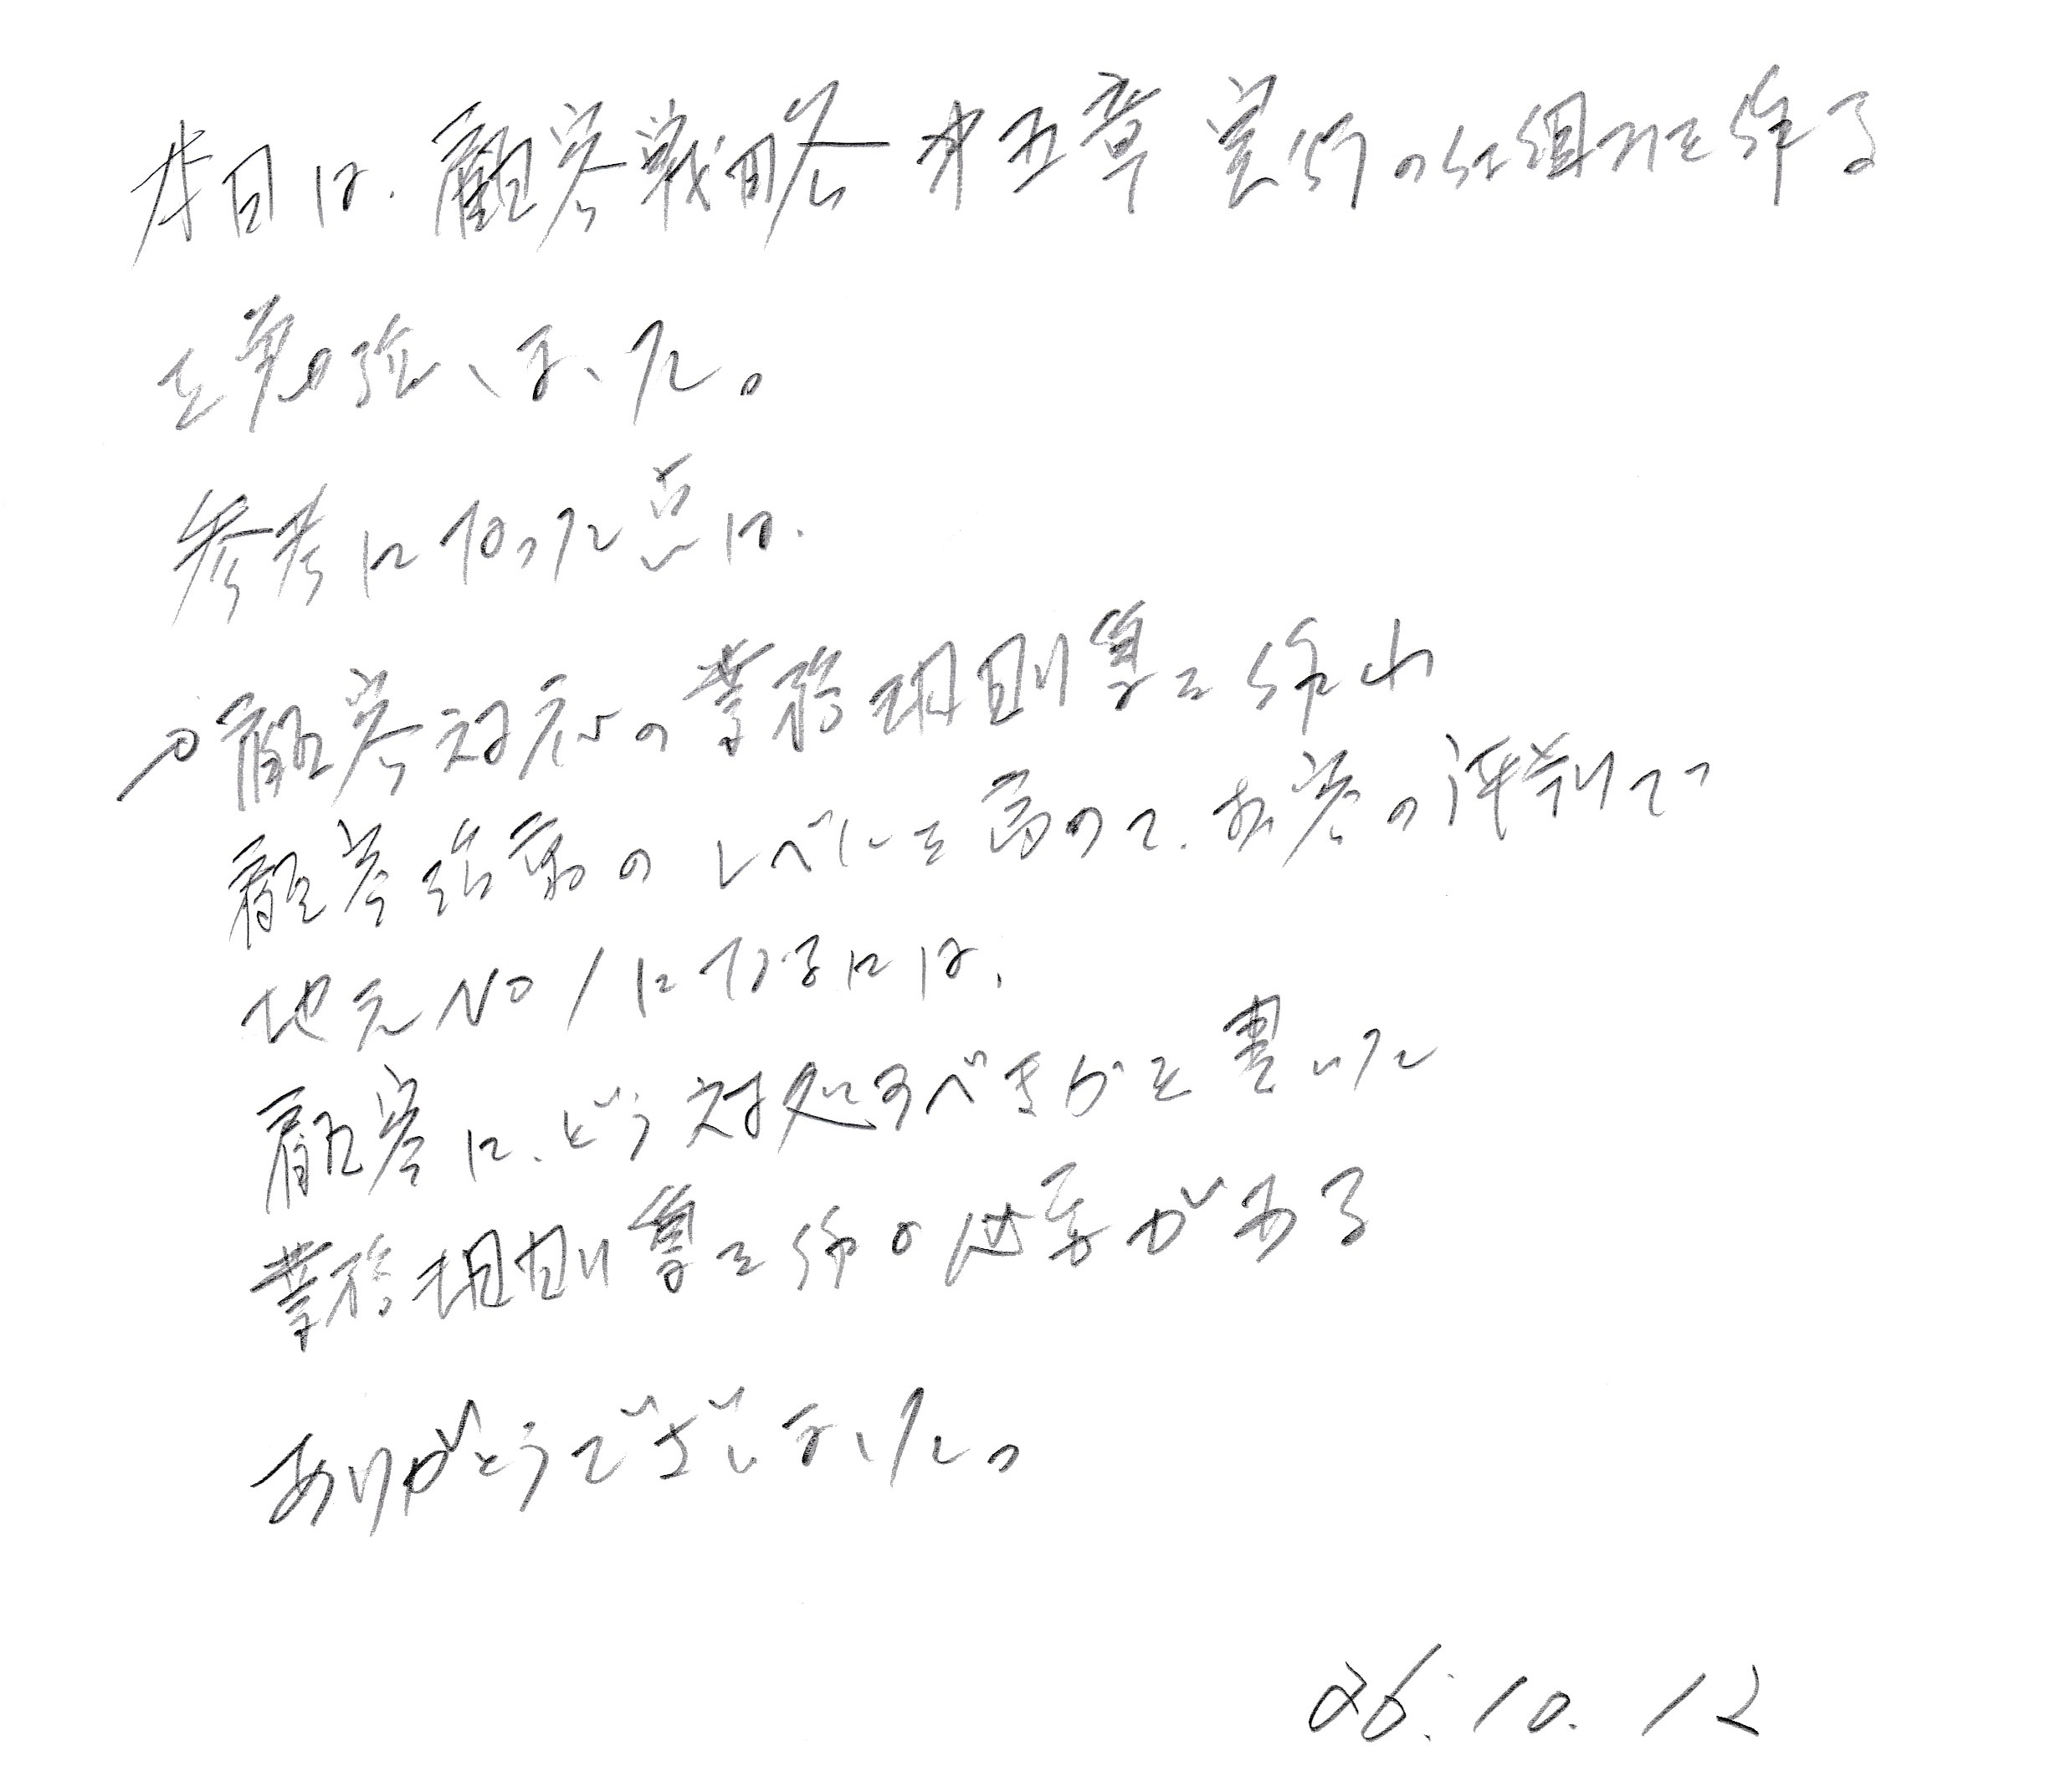 本日は、顧客戦略 第五章 実行の仕組みを作る
を勉強しました。
参考になった点は、
顧客対応の業務規則集を作れ
顧客活動のレベルを高めて、お客の評判で
地元NO1になるには、
顧客に、どう対処すべきかを書いた
業務規則集を作る必要がある
ありがとうございました。
26.10.12